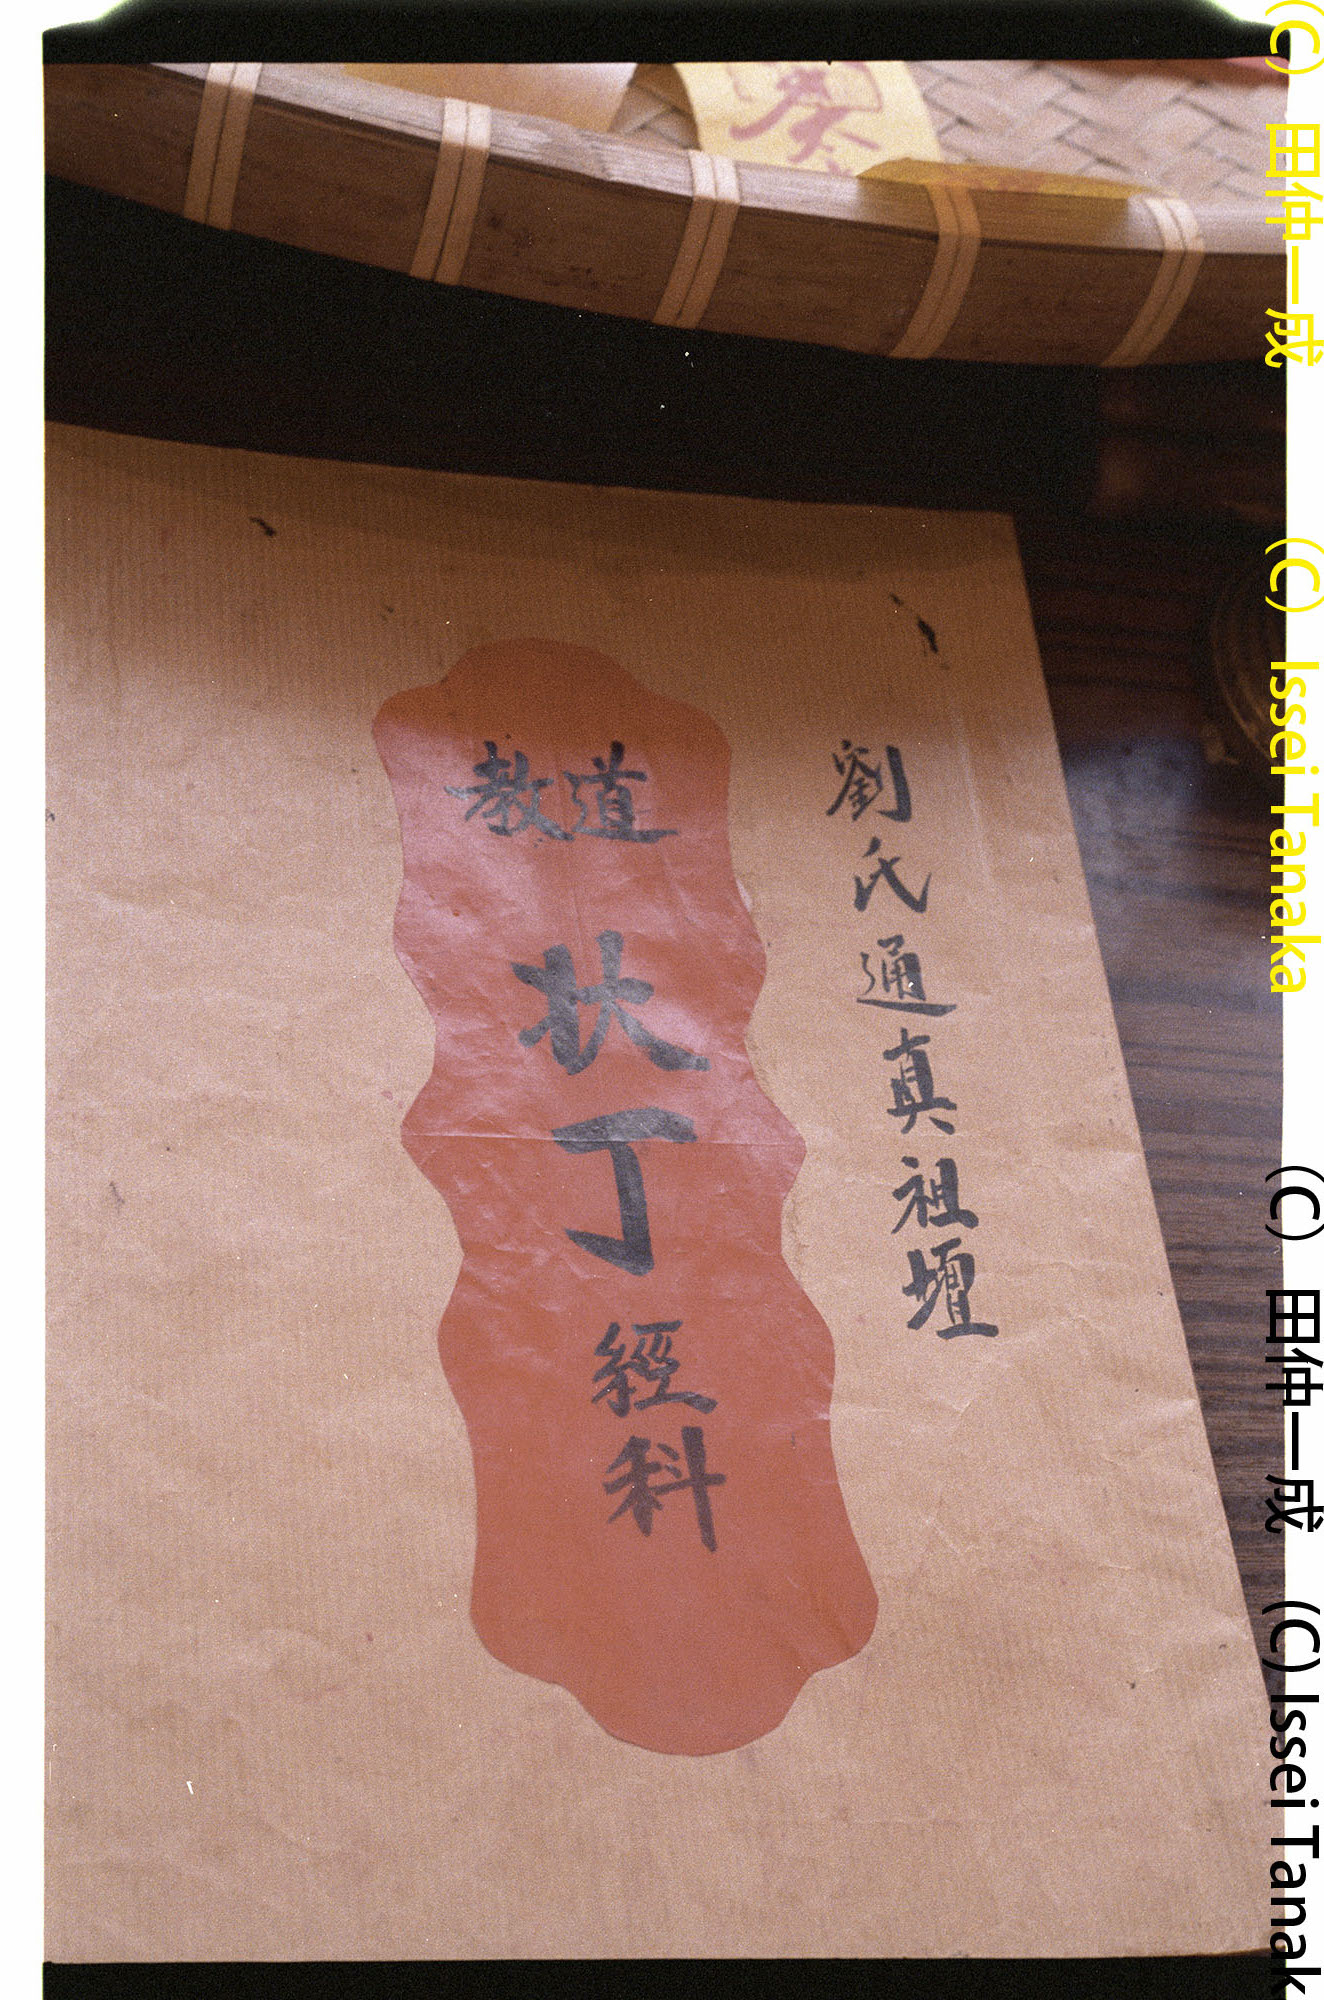 劉氏通真祖壇
道教
状丁
經科
(C) 田仲一成 (C) Issei Tanaka
(C) 田仲一成 (C) Issei Tanak